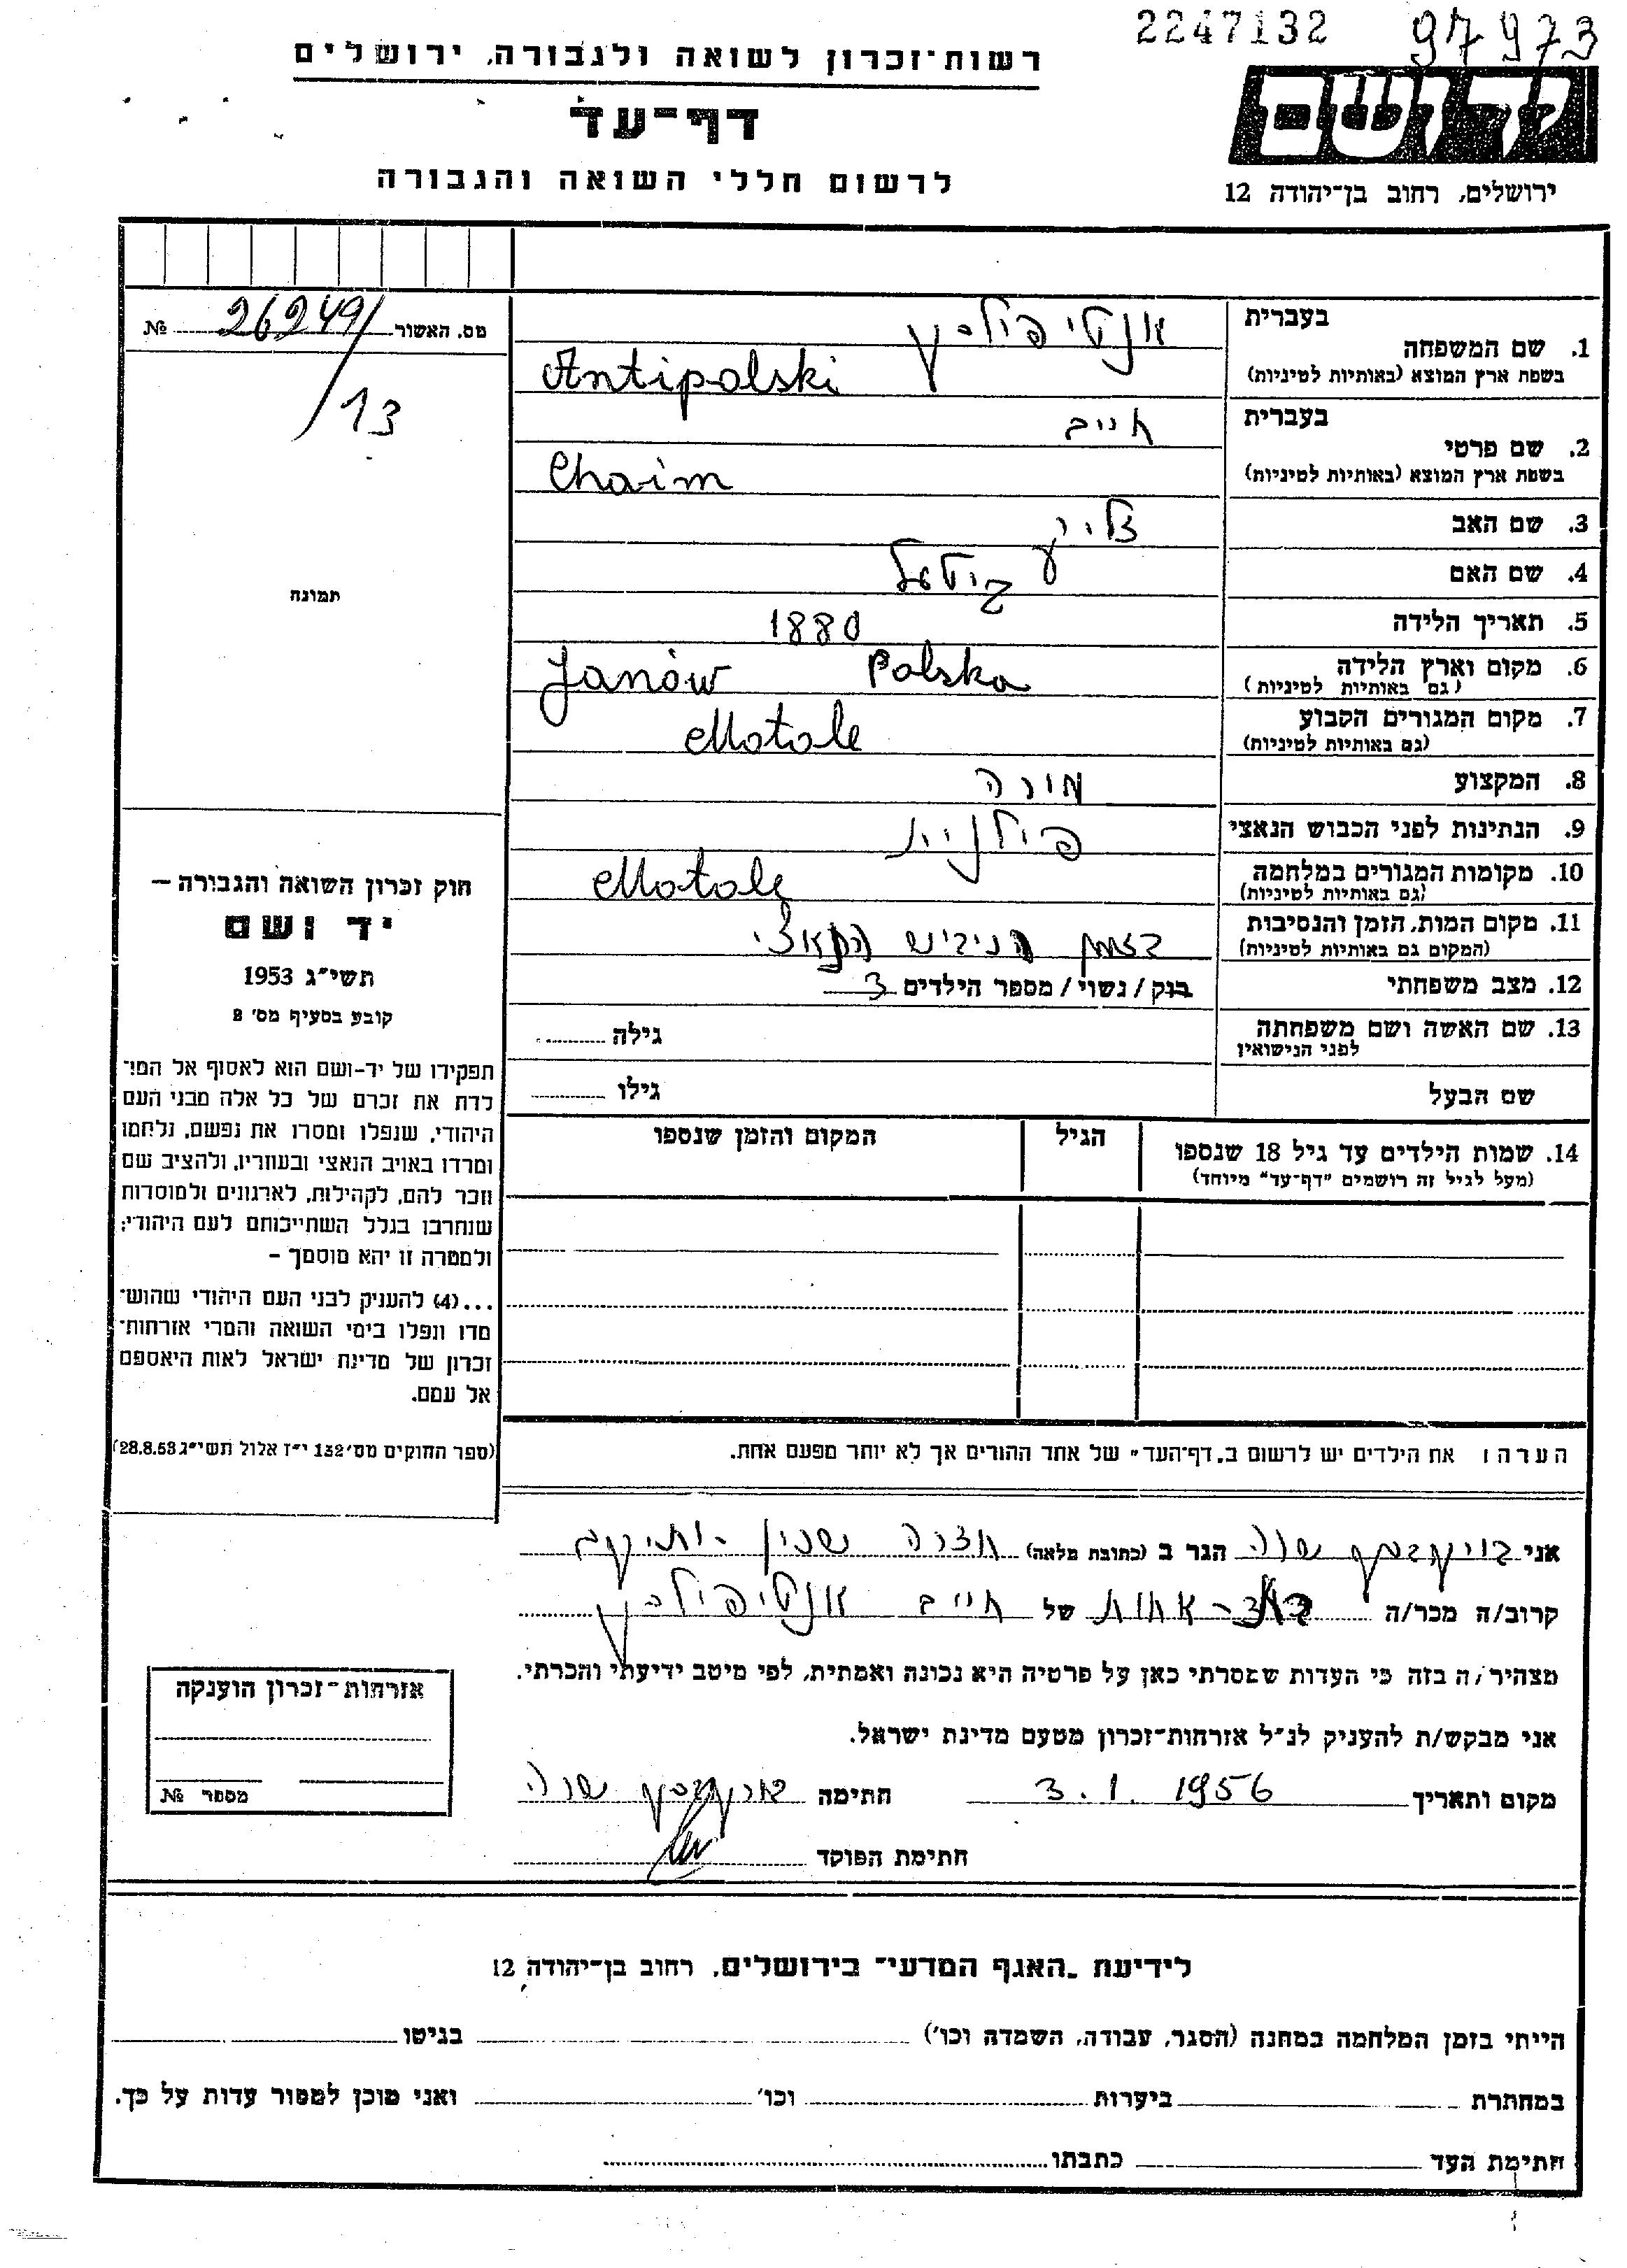 2247132 97973
רשות־זכרון לשואה ולגבורה, ירושלים
דף־עד
לרשום חללי השואה והגבורה
ירושלים, רחוב בן־יהודה 12
מס. האשור 26249/ №
/13
תמונה
1. שם המשפחה
בעברית אנטיפולסקי
בשפת ארץ המוצא (באותיות לטיניות) Antipolski
2. שם פרטי
בעברית חיים
בשפת ארץ המוצא (באותיות לטיניות) Chaim
3. שם האב
4. שם האם
5. תאריך הלידה 1880
6. מקום וארץ הלידה Janów Polska
(גם באותיות לטיניות)
7. מקום המגורים הקבוע Motole
(גם באותיות לטיניות)
8. המקצוע מורה
9. הנתינות לפני הכבוש הנאצי פולנית
10. מקומות המגורים במלחמה Motole
(גם באותיות לטיניות)
11. מקום המות, הזמן והנסיבות בזמן הכיבוש הנאצי
(המקום גם באותיות לטיניות)
12. מצב משפחתי רוק / נשוי / מספר הילדים 3
13. שם האשה ושם משפחתה גילה
לפני הנישואין
שם הבעל גילו
14. שמות הילדים עד גיל 18 שנספו הגיל המקום והזמן שנספו
(מעל לגיל זה רושמים "דף־עד" מיוחד)
הערה: את הילדים יש לרשום ב„דף־העד" של אחד ההורים אך לא יותר מפעם אחת.
חוק זכרון השואה והגבורה —
יד ושם
תשי"ג 1953
קובע בסעיף מס' 2
תפקידו של יד-ושם הוא לאסוף אל המו־
לדת את זכרם של כל אלה מבני העם
היהודי, שנפלו ומסרו את נפשם, נלחמו
ומרדו באויב הנאצי ובעוזריו, ולהציב שם
וזכר להם, לקהילות, לארגונים ולמוסדות
שנחרבו בגלל השתייכותם לעם היהודי;
ולמטרה זו יהא מוסמך –
...(4) להעניק לבני העם היהודי שהוש־
מדו ונפלו בימי השואה והמרי אזרחות־
זכרון של מדינת ישראל לאות היאספם
אל עמם.
(ספר החוקים מס' 132 י"ז אלול תשי"ג 28.8.53)
אני שרה הגר ב (כתובת מלאה) חצרה
קרוב/ה מכר/ה בת-אחות של חיים אנטיפולסקי
מצהיר/ה בזה כי העדות שמסרתי כאן על פרטיה היא נכונה ואמתית, לפי מיטב ידיעתי והכרתי.
אני מבקש/ת להעניק לנ"ל אזרחות־זכרון מטעם מדינת ישראל.
מקום ותאריך 3.1.1956 חתימה שרה
חתימת הפוקד
אזרחות־זכרון הוענקה
מספר №
לידיעת „האגף המדעי" בירושלים, רחוב בן־יהודה 12
הייתי בזמן המלחמה במחנה (הסגר, עבודה, השמדה וכו') בגיטו
במחתרת ביערות וכו' ואני מוכן למסור עדות על כך.
חתימת העד כתבתו